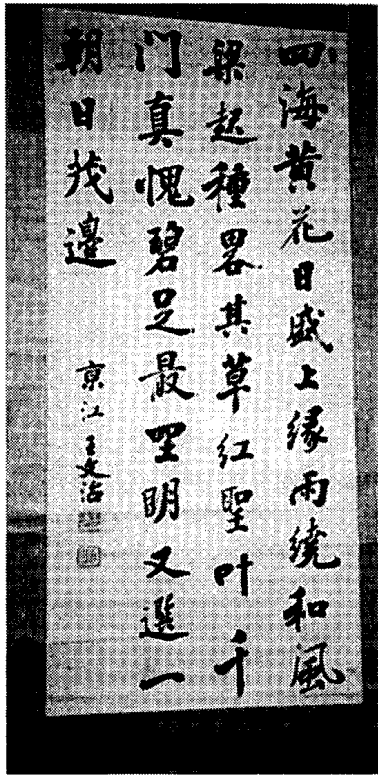 四海黄花日盛上缘雨绕和風
梁起種畧其草红聖叶千
门真愧碧足最堊明又選一
朝日找邊
京江王文治